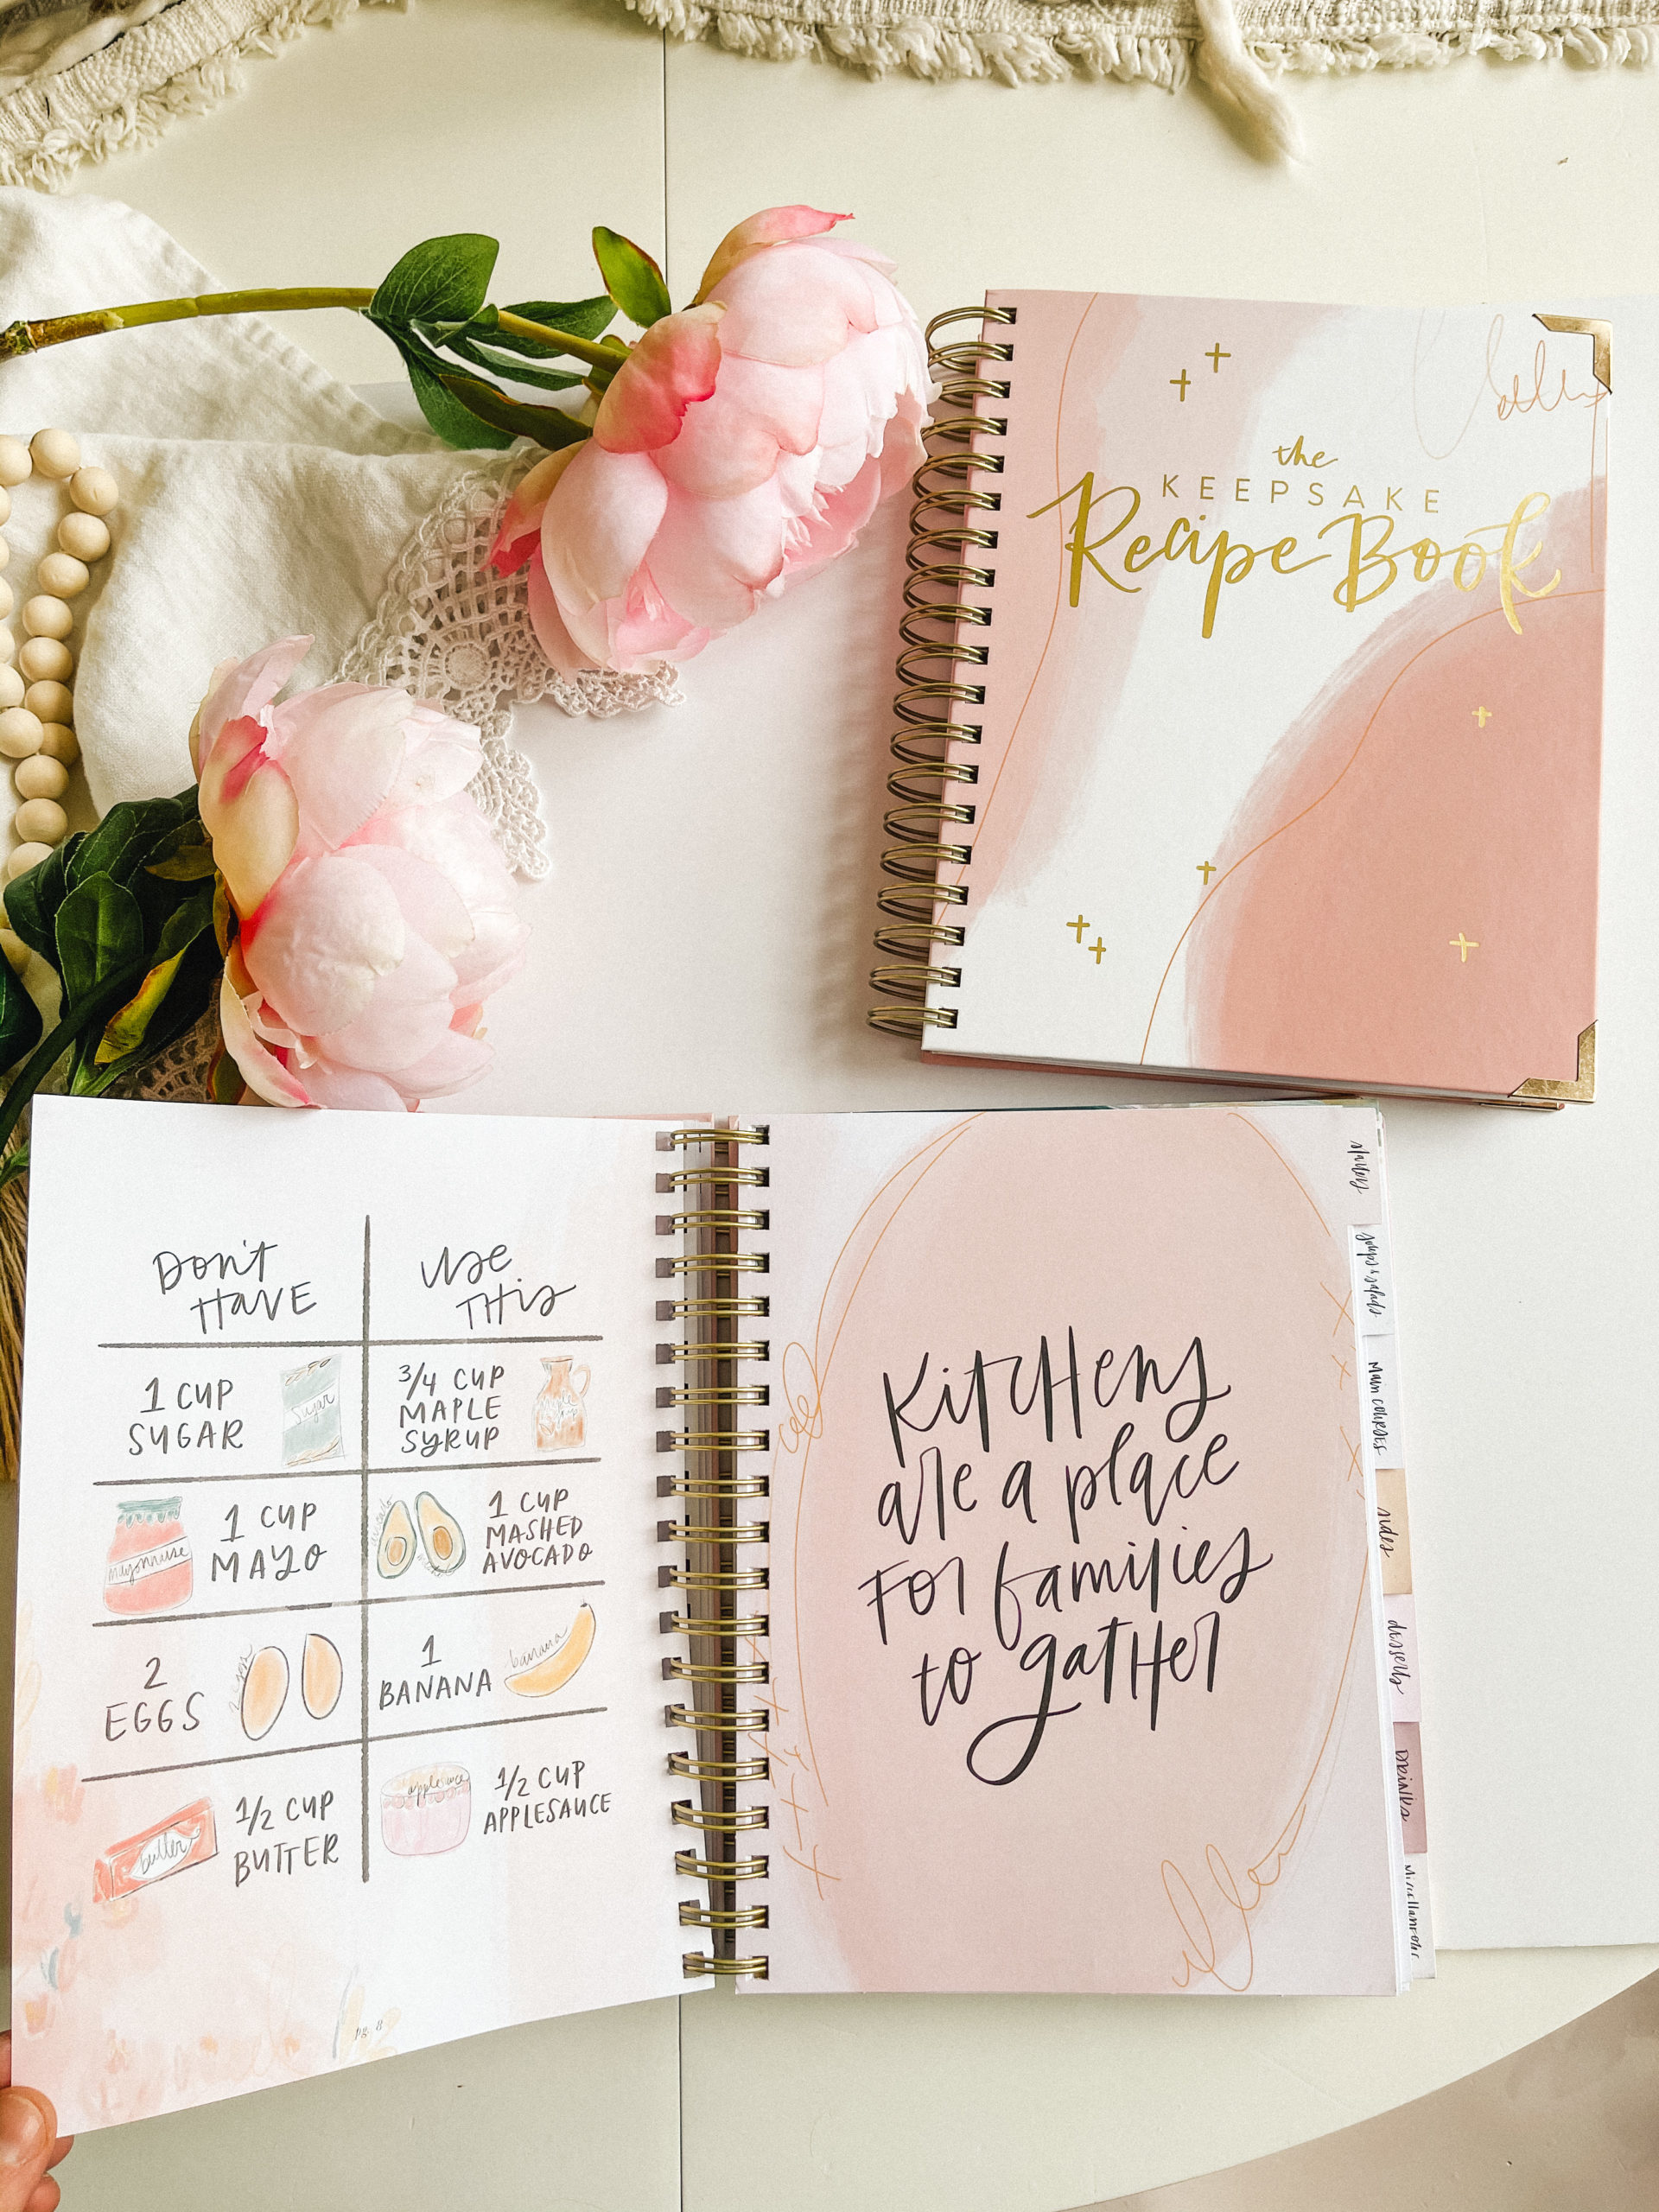 the
KEEPSAKE
Recipe Book
Don't
Have
Use
This
1 CUP
SUGAR
Sugar
3/4 CUP
MAPLE
SYRUP
mayonnaise
1 CUP
MAYO
avocado
1 CUP
MASHED
AVOCADO
2
EGGS
2 eggs
1
BANANA
banana
butter
1/2 CUP
BUTTER
applesauce
1/2 CUP
APPLESAUCE
pg. 8
Kitchens
are a place
for families
to gather
Main Courses
sides
desserts
Drinks
Miscellaneous